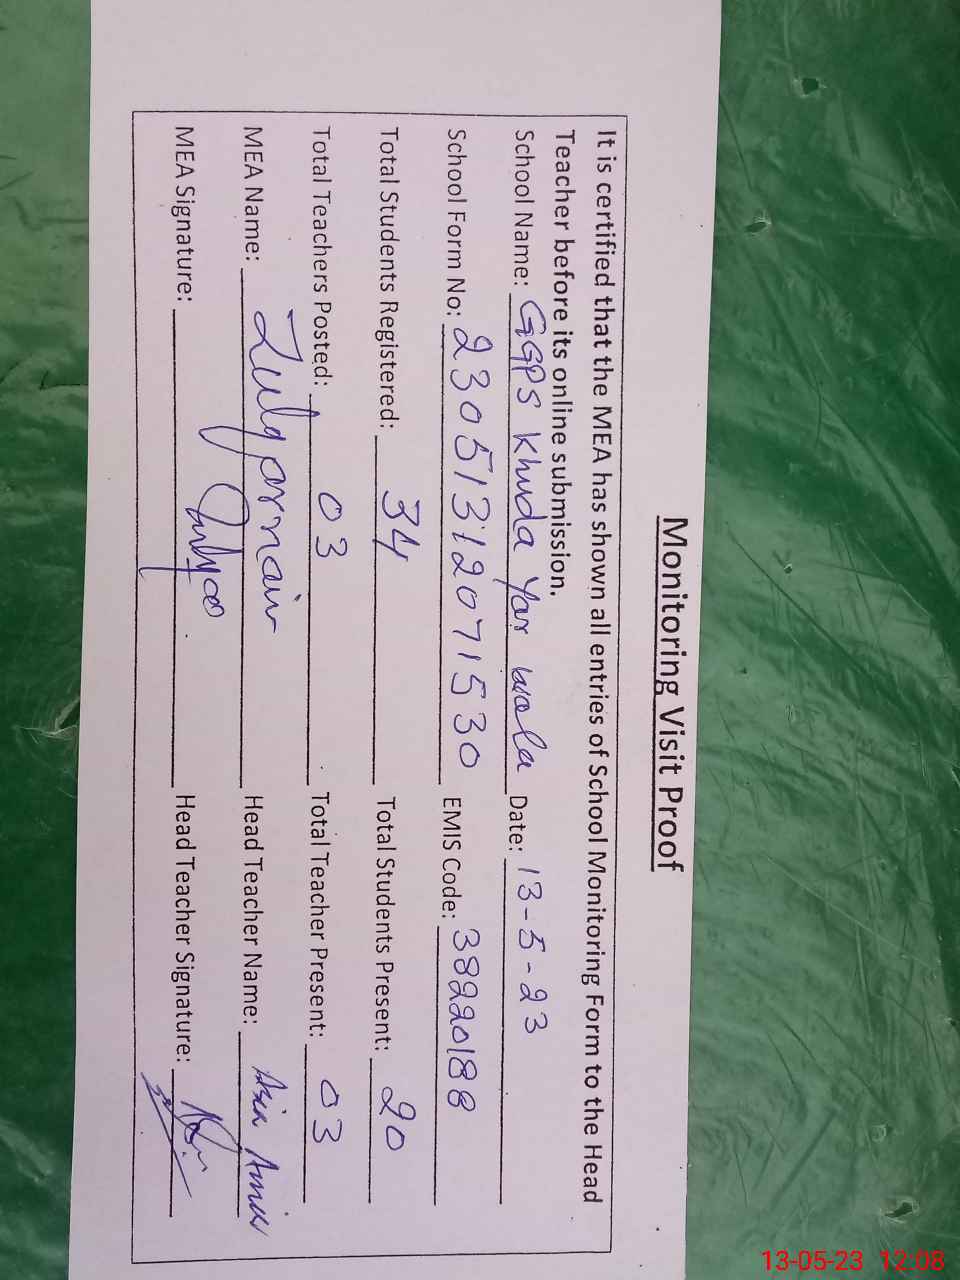 Monitoring Visit Proof
It is certified that the MEA has shown all entries of School Monitoring Form to the Head
Teacher before its online submission.
School Name: GGPS Khuda Yar wala Date: 13-5-23
School Form No: 23051312071530 EMIS Code: 38220188
Total Students Registered: 34 Total Students Present: 20
Total Teachers Posted: 03 Total Teacher Present: 03
MEA Name: Zulqarnain Head Teacher Name: Asia Amir
MEA Signature: Head Teacher Signature:
13-05-23 12:08